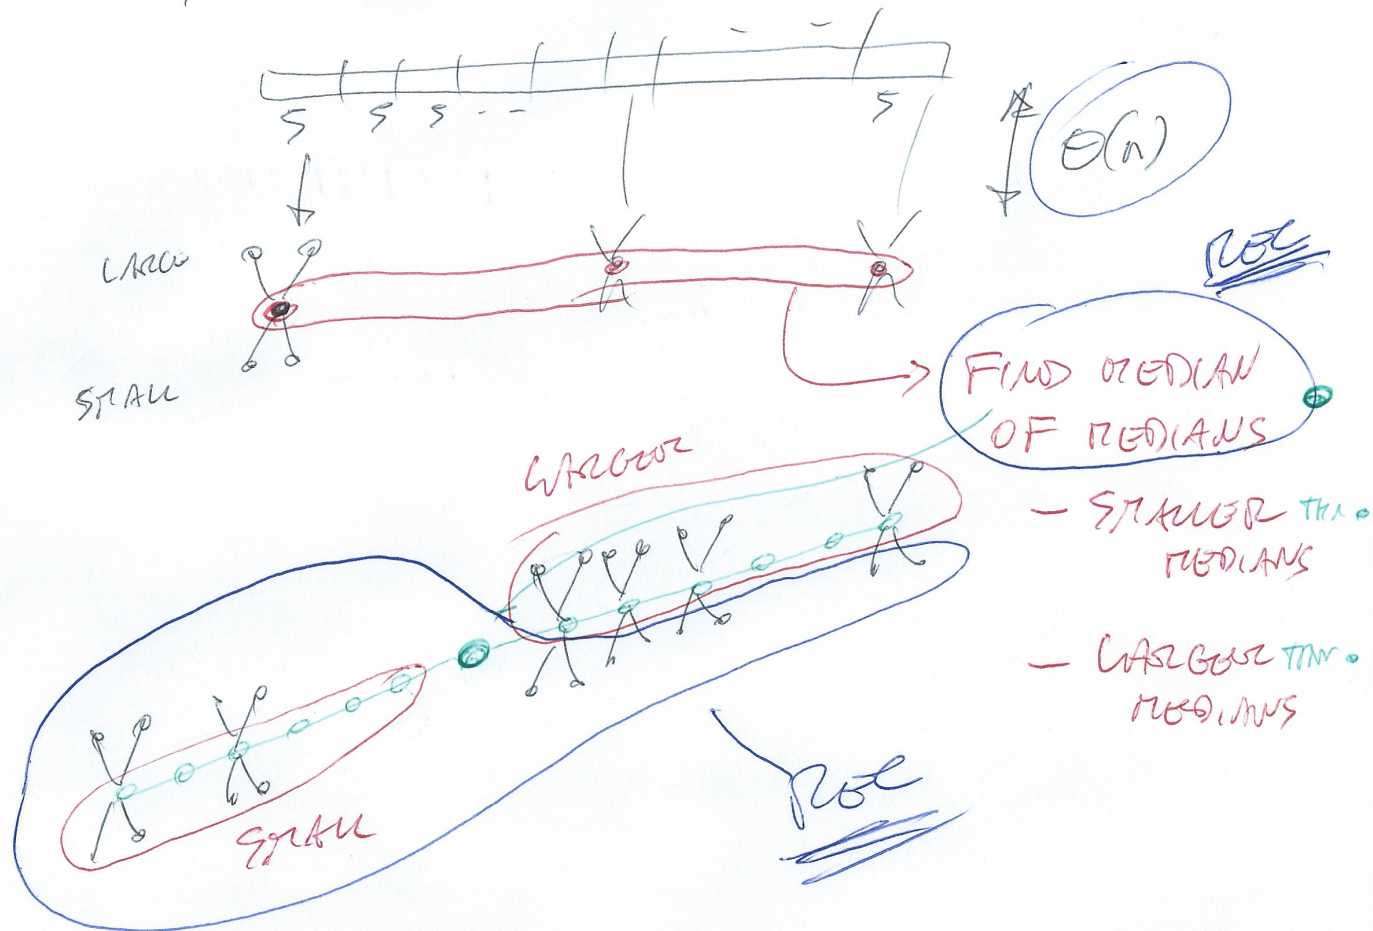 5 5 5 - - 5
Θ(n)
LARGE
REC
SMALL
FIND MEDIAN
OF MEDIANS
LARGER
- SMALLER THAN
MEDIANS
- LARGER THAN
MEDIANS
REC
SMALL